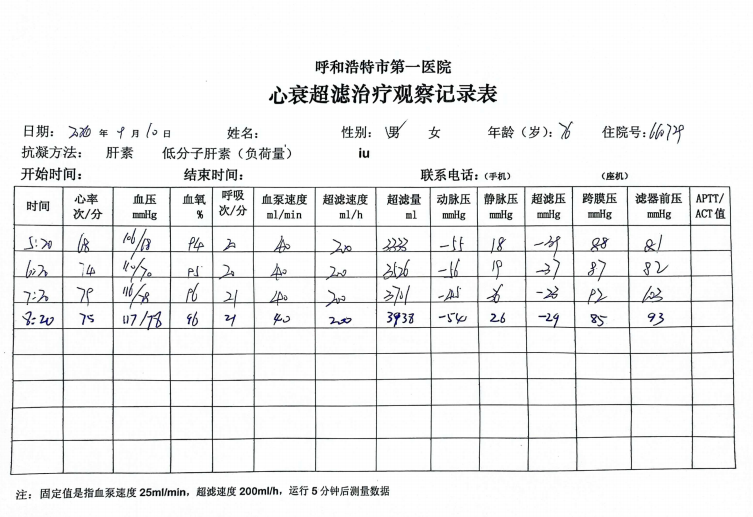 呼和浩特市第一医院
心衰超滤治疗观察记录表
日期: 2020 年 9 月 10 日 姓名: 性别: 男 女 年龄（岁）: 76 住院号: 660729
抗凝方法: 肝素 低分子肝素（负荷量） iu
开始时间: 结束时间: 联系电话:（手机） （座机）
时间 心率 次/分 血压 mmHg 血氧 % 呼吸 次/分 血泵速度 ml/min 超滤速度 ml/h 超滤量 ml 动脉压 mmHg 静脉压 mmHg 超滤压 mmHg 跨膜压 mmHg 滤器前压 mmHg APTT/ ACT值
5:20 68 106/68 94 20 40 200 3333 -55 18 -39 88 81
6:20 74 110/70 95 20 40 200 3526 -56 19 -37 87 82
7:20 79 116/78 96 21 40 200 3701 -45 36 -23 92 103
8:20 75 117/78 96 21 40 200 3938 -54 26 -29 85 93
注: 固定值是指血泵速度 25ml/min，超滤速度 200ml/h，运行 5 分钟后测量数据